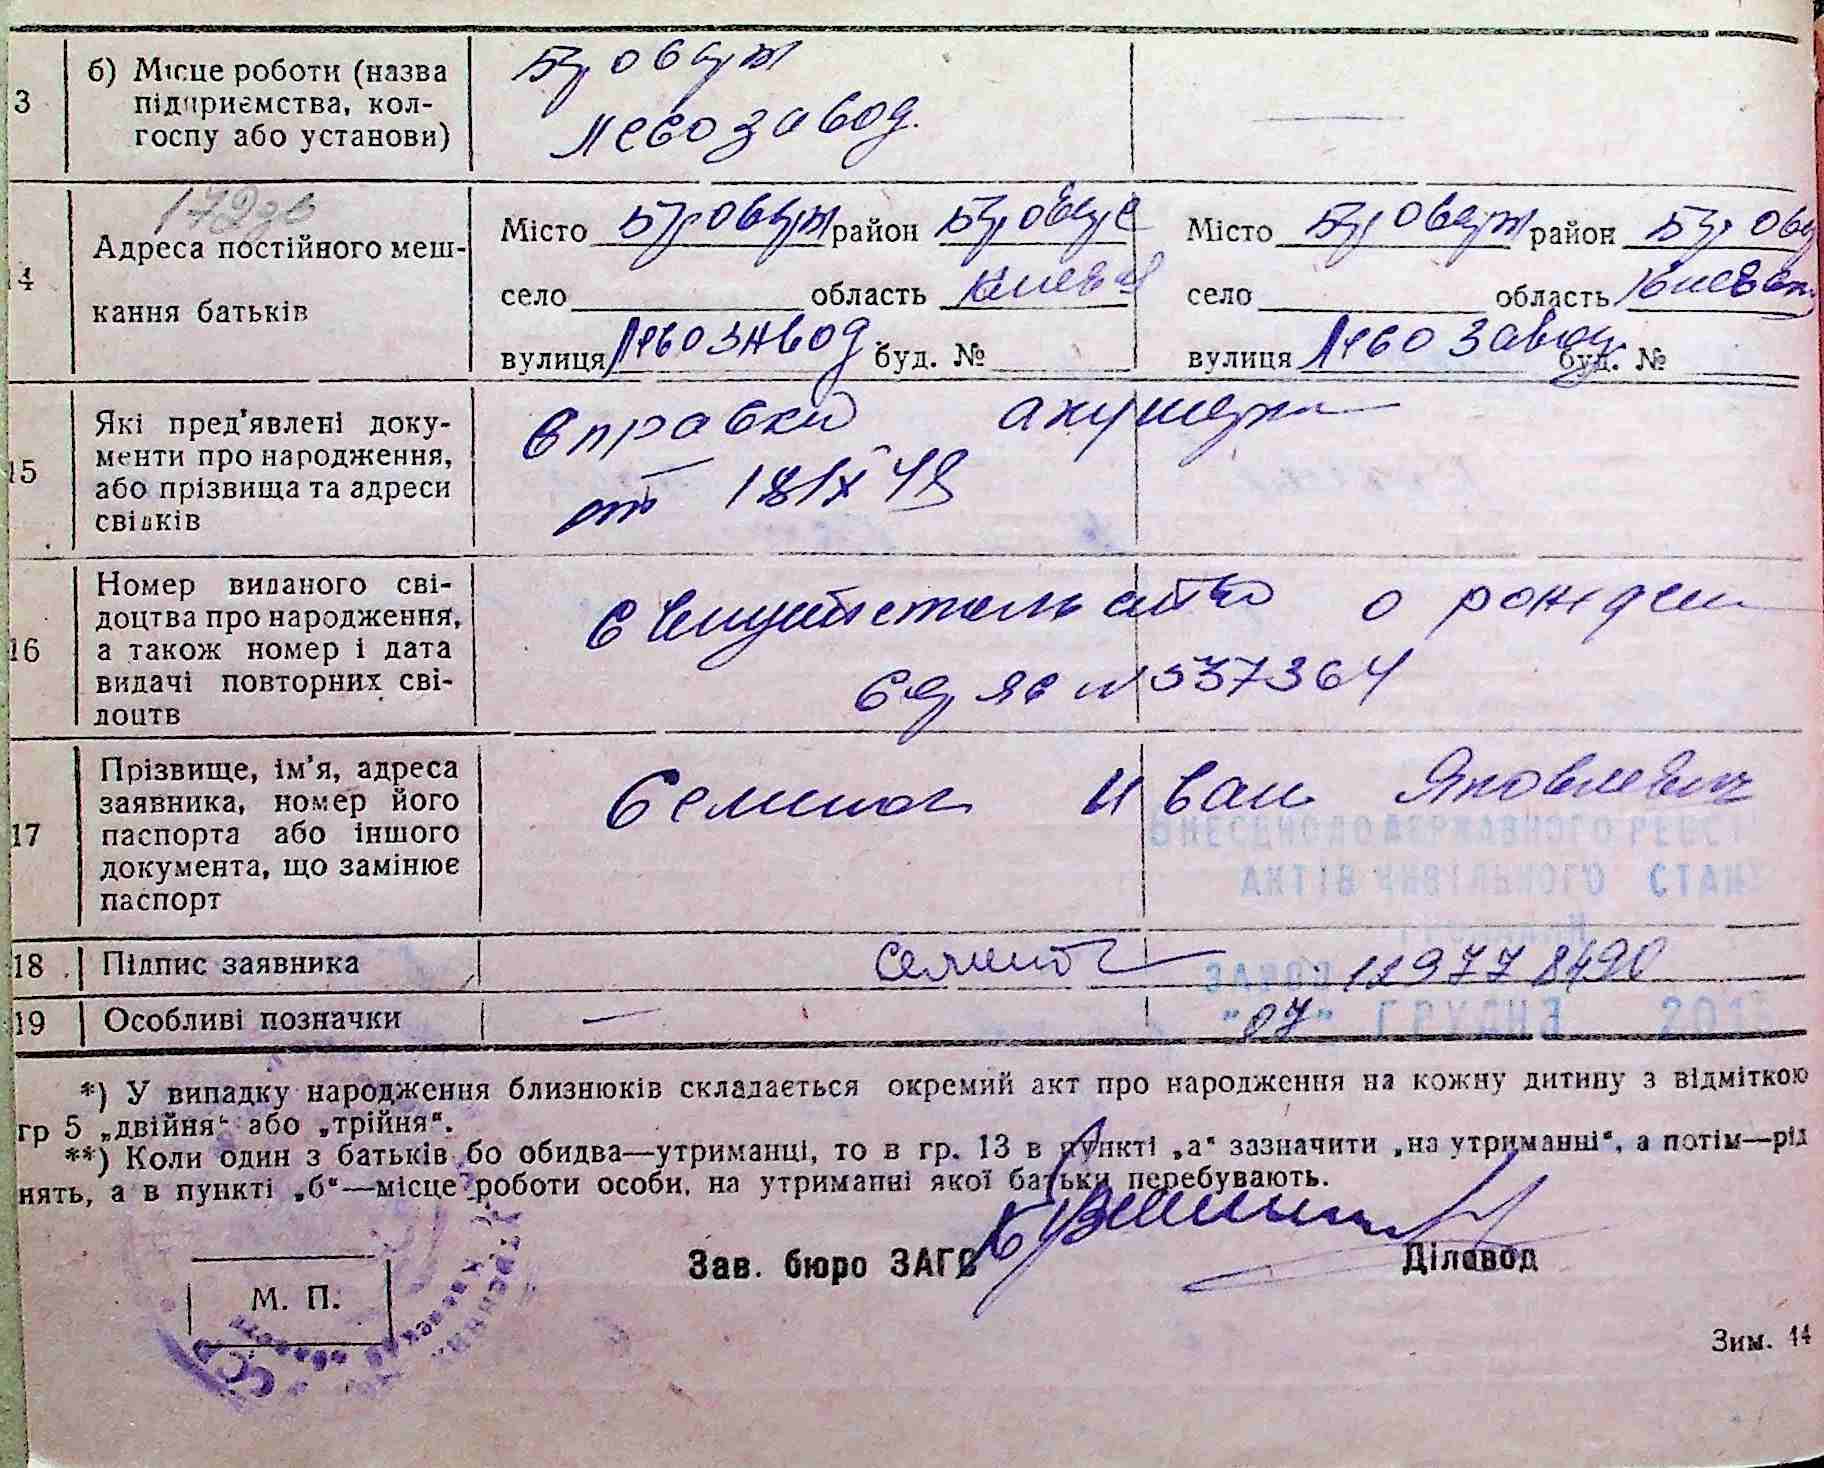 3
б) Місце роботи (назва
підприємства, кол-
госпу або установи)
Бровары
Лесозавод.
14
Адреса постійного меш-
кання батьків
Місто Бровары район Бровар
село область Киевск
вулиця Лесозавод буд. №
Місто Бровары район Бров
село область Киевск
вулиця Лесозавод буд. №
15
Які пред'явлені доку-
менти про народження,
або прізвища та адреси
свідків
справки акушерки
от 18 IX 48
16
Номер виданого сві-
доцтва про народження,
а також номер і дата
видачі повторних сві-
доцтв
свидетельство о рожден
№ 537364
17
Прізвище, ім'я, адреса
заявника, номер його
паспорта або іншого
документа, що замінює
паспорт
Иван Яковлевич
ВНЕСЕНО ДО ДЕРЖАВНОГО РЕЄСТ
АКТІВ ЦИВІЛЬНОГО СТАН
18
Підпис заявника
19
Особливі позначки
—
"07" ГРУДНЯ
*) У випадку народження близнюків складається окремий акт про народження на кожну дитину з відміткою
гр 5 „двійня“ або „трійня“.
**) Коли один з батьків бо обидва—утриманці, то в гр. 13 в пункті „а“ зазначити „на утриманні“, а потім—рід
нять, а в пункті „б“—місце роботи особи, на утриманні якої батьки перебувають.
Зав. бюро ЗАГС
Діловод
М. П.
Зим. 14